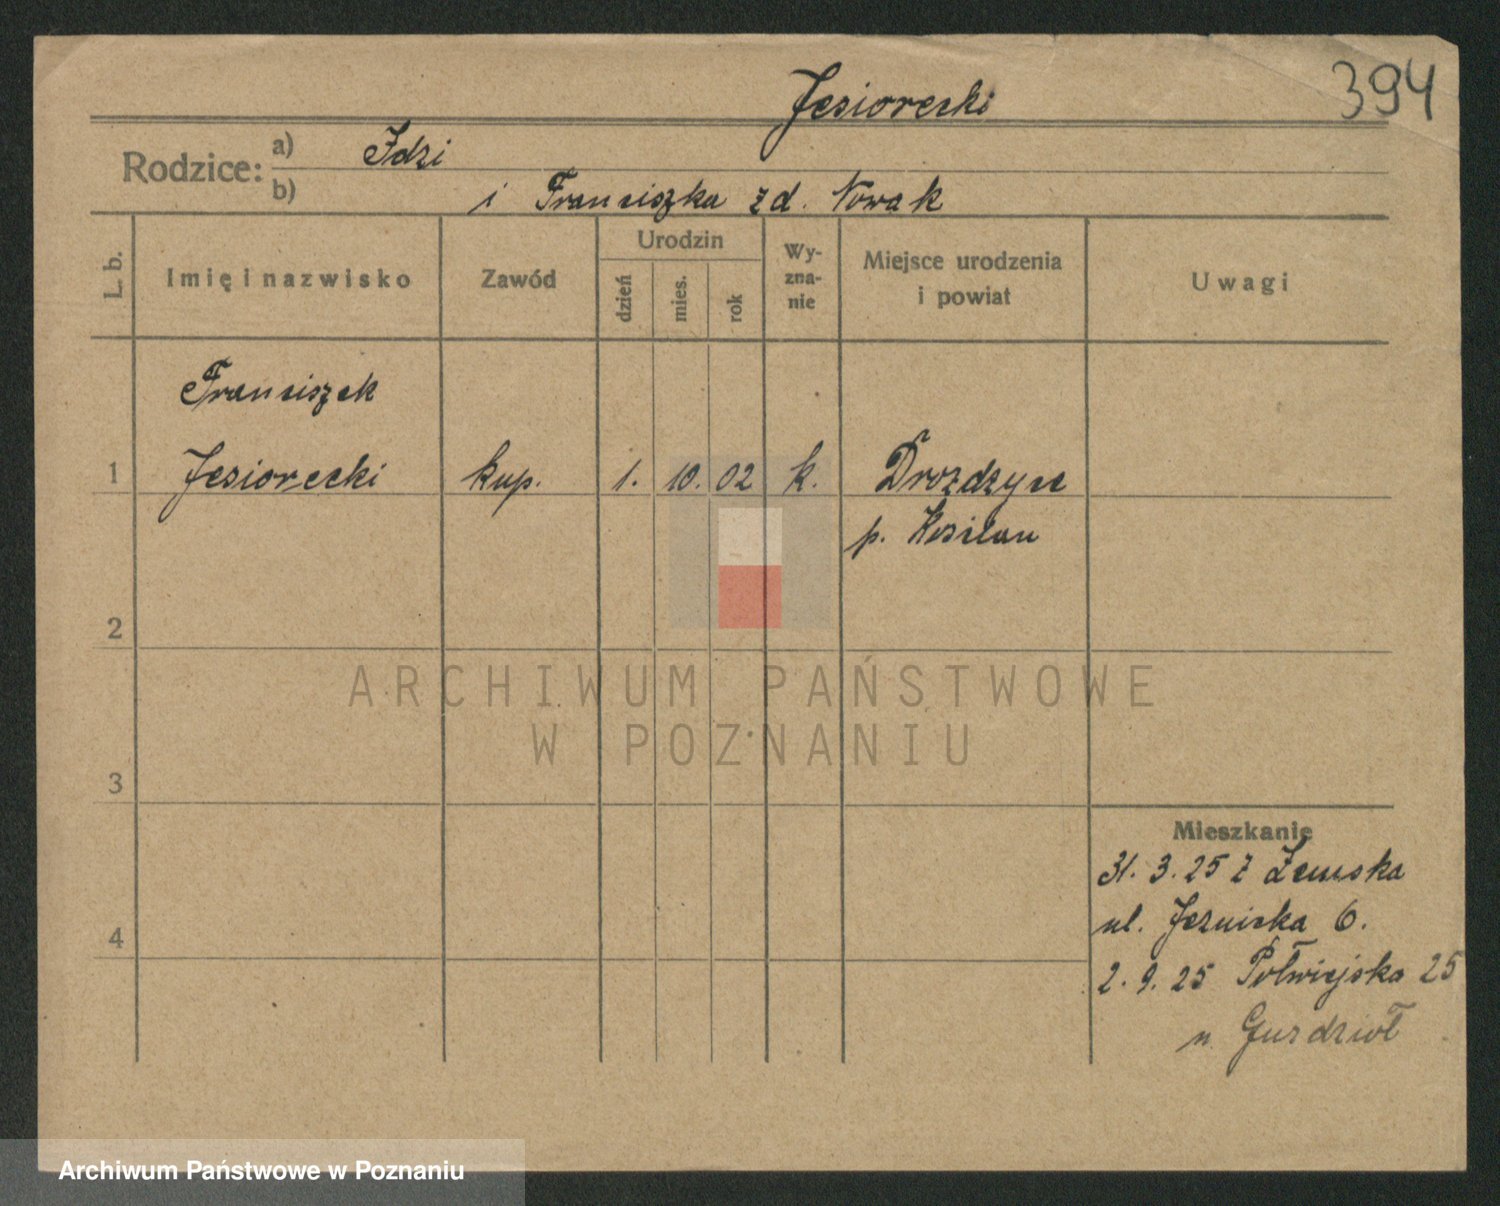 394
Jesiorecki
Rodzice: a) Idzi
b) i Franciszka zd. Nowak
L. b. Imię i nazwisko Zawód Urodzin dzień mies. rok Wy-zna-nie Miejsce urodzenia i powiat Uwagi
Franciszek
1 Jesiorecki kup. 1. 10. 02 k. Drożdżyn
p.
2
ARCHIWUM PAŃSTWOWE
W POZNANIU
3
Mieszkanie
31. 3. 25 z
4 ul. 6.
2. 9. 25 Półwiejska 25
n.
Archiwum Państwowe w Poznaniu